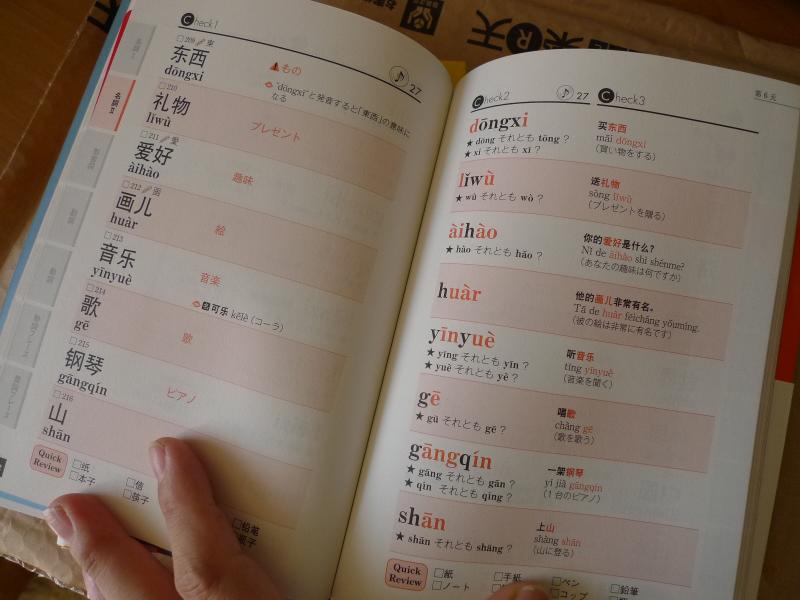 Check1
27
名詞1
名詞2
209 東
东西
dōngxi
もの
"dōngxi"と発音すると「東西」の意味に
なる
210
礼物
lǐwù
プレゼント
211 愛
爱好
àihào
趣味
212 画
画儿
huàr
絵
213
音乐
yīnyuè
音楽
可乐 kělè (コーラ)
214
歌
gē
歌
215
钢琴
gāngqín
ピアノ
216
山
shān
Quick
Review
□紙
□本子
□信
□筷子
□鉛筆
Check2
27
Check3
第6天
dōngxi
★ dōng それとも tōng ?
★ xi それとも xī ?
买东西
mǎi dōngxi
(買い物をする)
lǐwù
★ wù それとも wò ?
送礼物
sòng lǐwù
(プレゼントを贈る)
àihào
★ hào それとも hāo ?
你的爱好是什么?
Nǐ de àihào shì shénme?
(あなたの趣味は何ですか)
huàr
他的画儿非常有名。
Tā de huàr fēicháng yǒumíng.
(彼の絵は非常に有名です)
yīnyuè
★ yīng それとも yīn ?
★ yuè それとも yè ?
听音乐
tīng yīnyuè
(音楽を聞く)
gē
★ gū それとも gē ?
唱歌
chàng gē
(歌を歌う)
gāngqín
★ gāng それとも gān ?
★ qín それとも qíng ?
一架钢琴
yí jià gāngqín
(1台のピアノ)
shān
★ shān それとも shāng ?
上山
shàng shān
(山に登る)
Quick
Review
□紙
□ノート
□手紙
□ペン
□コップ
□鉛筆